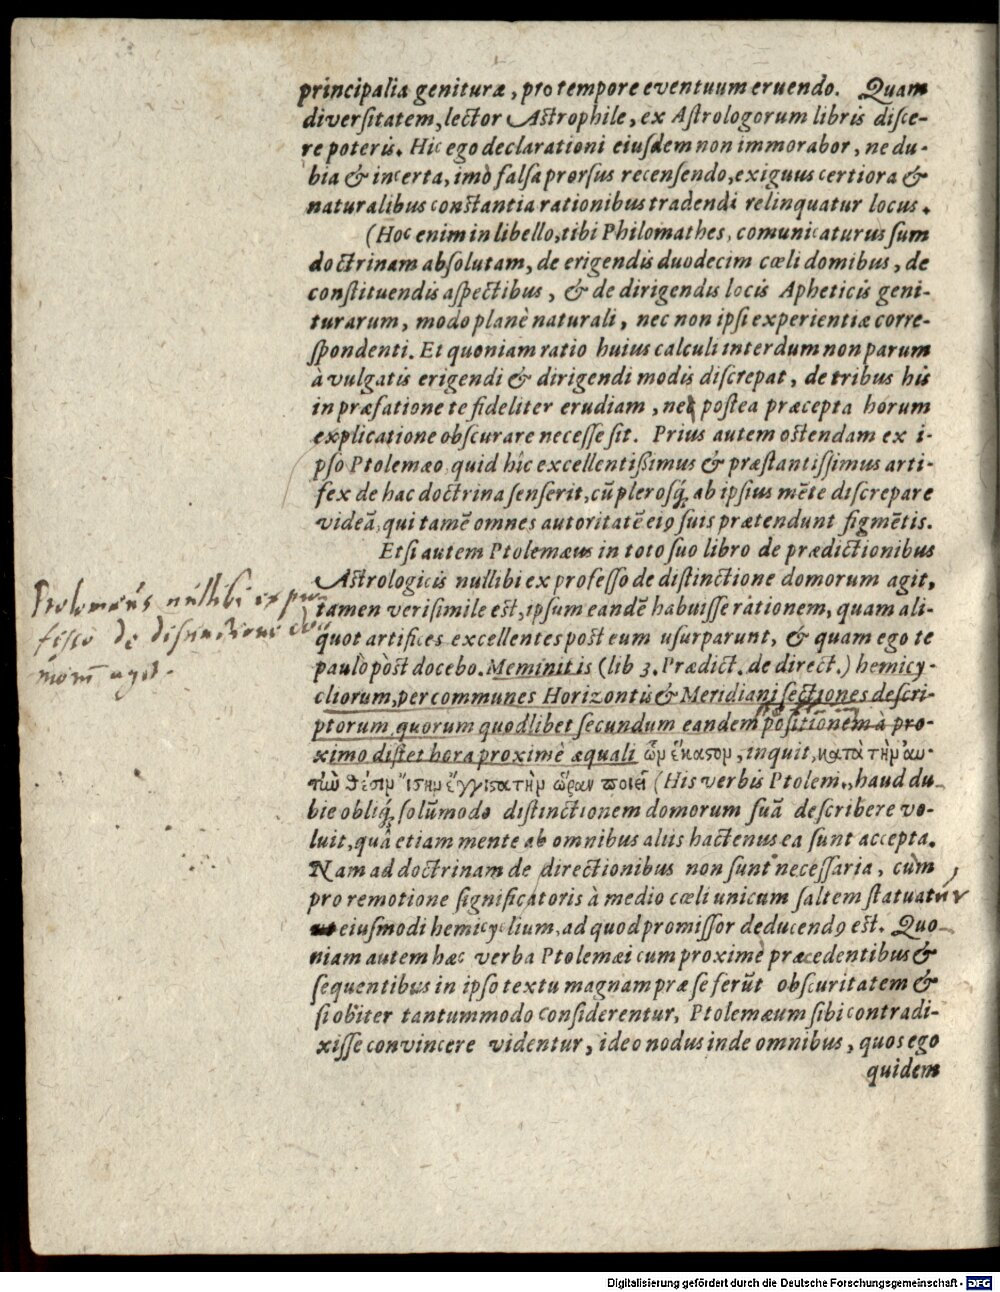 principalia genituræ, pro tempore eventuum eruendo. Quam
diversitatem, lector Astrophile, ex Astrologorum libris disce-
re poteris. Hic ego declarationi eiusdem non immorabor, ne du-
bia & incerta, imò falsa prorsus recensendo, exiguus certiora &
naturalibus constantia rationibus tradendi relinquatur locus.
(Hoc enim in libello, tibi Philomathes, comunicaturus sum
doctrinam absolutam, de erigendis duodecim cœli domibus, de
constituendis aspectibus, & de dirigendis locis Apheticis geni-
turarum, modo planè naturali, nec non ipsi experientiæ corre-
spondenti. Et quoniam ratio huius calculi interdum non parum
à vulgatis erigendi & dirigendi modis discrepat, de tribus his
in præfatione te fideliter erudiam, nec postea præcepta horum
explicatione obscurare necesse sit. Prius autem ostendam ex i-
pso Ptolemæo quid hîc excellentißimus & præstantissimus arti-
fex de hac doctrina senserit, cũ plerosq́ꝫ ab ipsius mẽte discrepare
videã, qui tamẽ omnes autoritatẽ eiꝰ suis prætendunt figmẽtis.
Etsi autem Ptolemæus in toto suo libro de prædictionibus
Astrologicis nullibi ex professo de distinctione domorum agit,
tamen verisimile est, ipsum eandẽ habuisse rationem, quam ali-
quot artifices excellentes post eum usurparunt, & quam ego te
paulo pòst docebo. Meminit is (lib 3. Prædict. de direct.) hemicy-
cliorum, per communes Horizontis & Meridiani sectiones descri-
ptorum, quorum quodlibet secundum eandem positionem à pro-
ximo distet hora proximè æquali ὧν ἕκαστον, inquit, κατὰ τὴν αυ-
τὼ θέσιν ἴσην ἔγγιστα τὴν ὥραν ποιεῖ (His verbis Ptolem., haud du-
bie obliq́ꝫ, solũmodo distinctionem domorum suã describere vo-
luit, quâ etiam mente ab omnibus aliis hactenus ea sunt accepta.
Nam ad doctrinam de directionibus non sunt necessaria, cùm
pro remotione significatoris à medio cœli unicum saltem statuatur
eiusmodi hemicyclium, ad quod promissor deducendꝰ est. Quo-
niam autem hæc verba Ptolemæi cum proximè præcedentibus &
sequentibus in ipso textu magnam præ se ferũt obscuritatem &
si obiter tantummodo considerentur, Ptolemæum sibi contradi-
xisse convincere videntur, ideo nodus inde omnibus, quos ego
quidem
Ptolemæus nullibi ex pro
fesso de distinctione do
morũ agit.
Digitalisierung gefördert durch die Deutsche Forschungsgemeinschaft - DFG